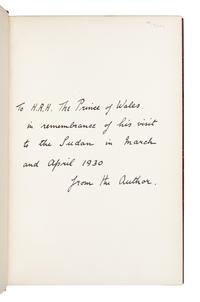 To H.R.H. The Prince of Wales.
in remembrance of his visit
to the Sudan in March
and April 1930
from the Author.